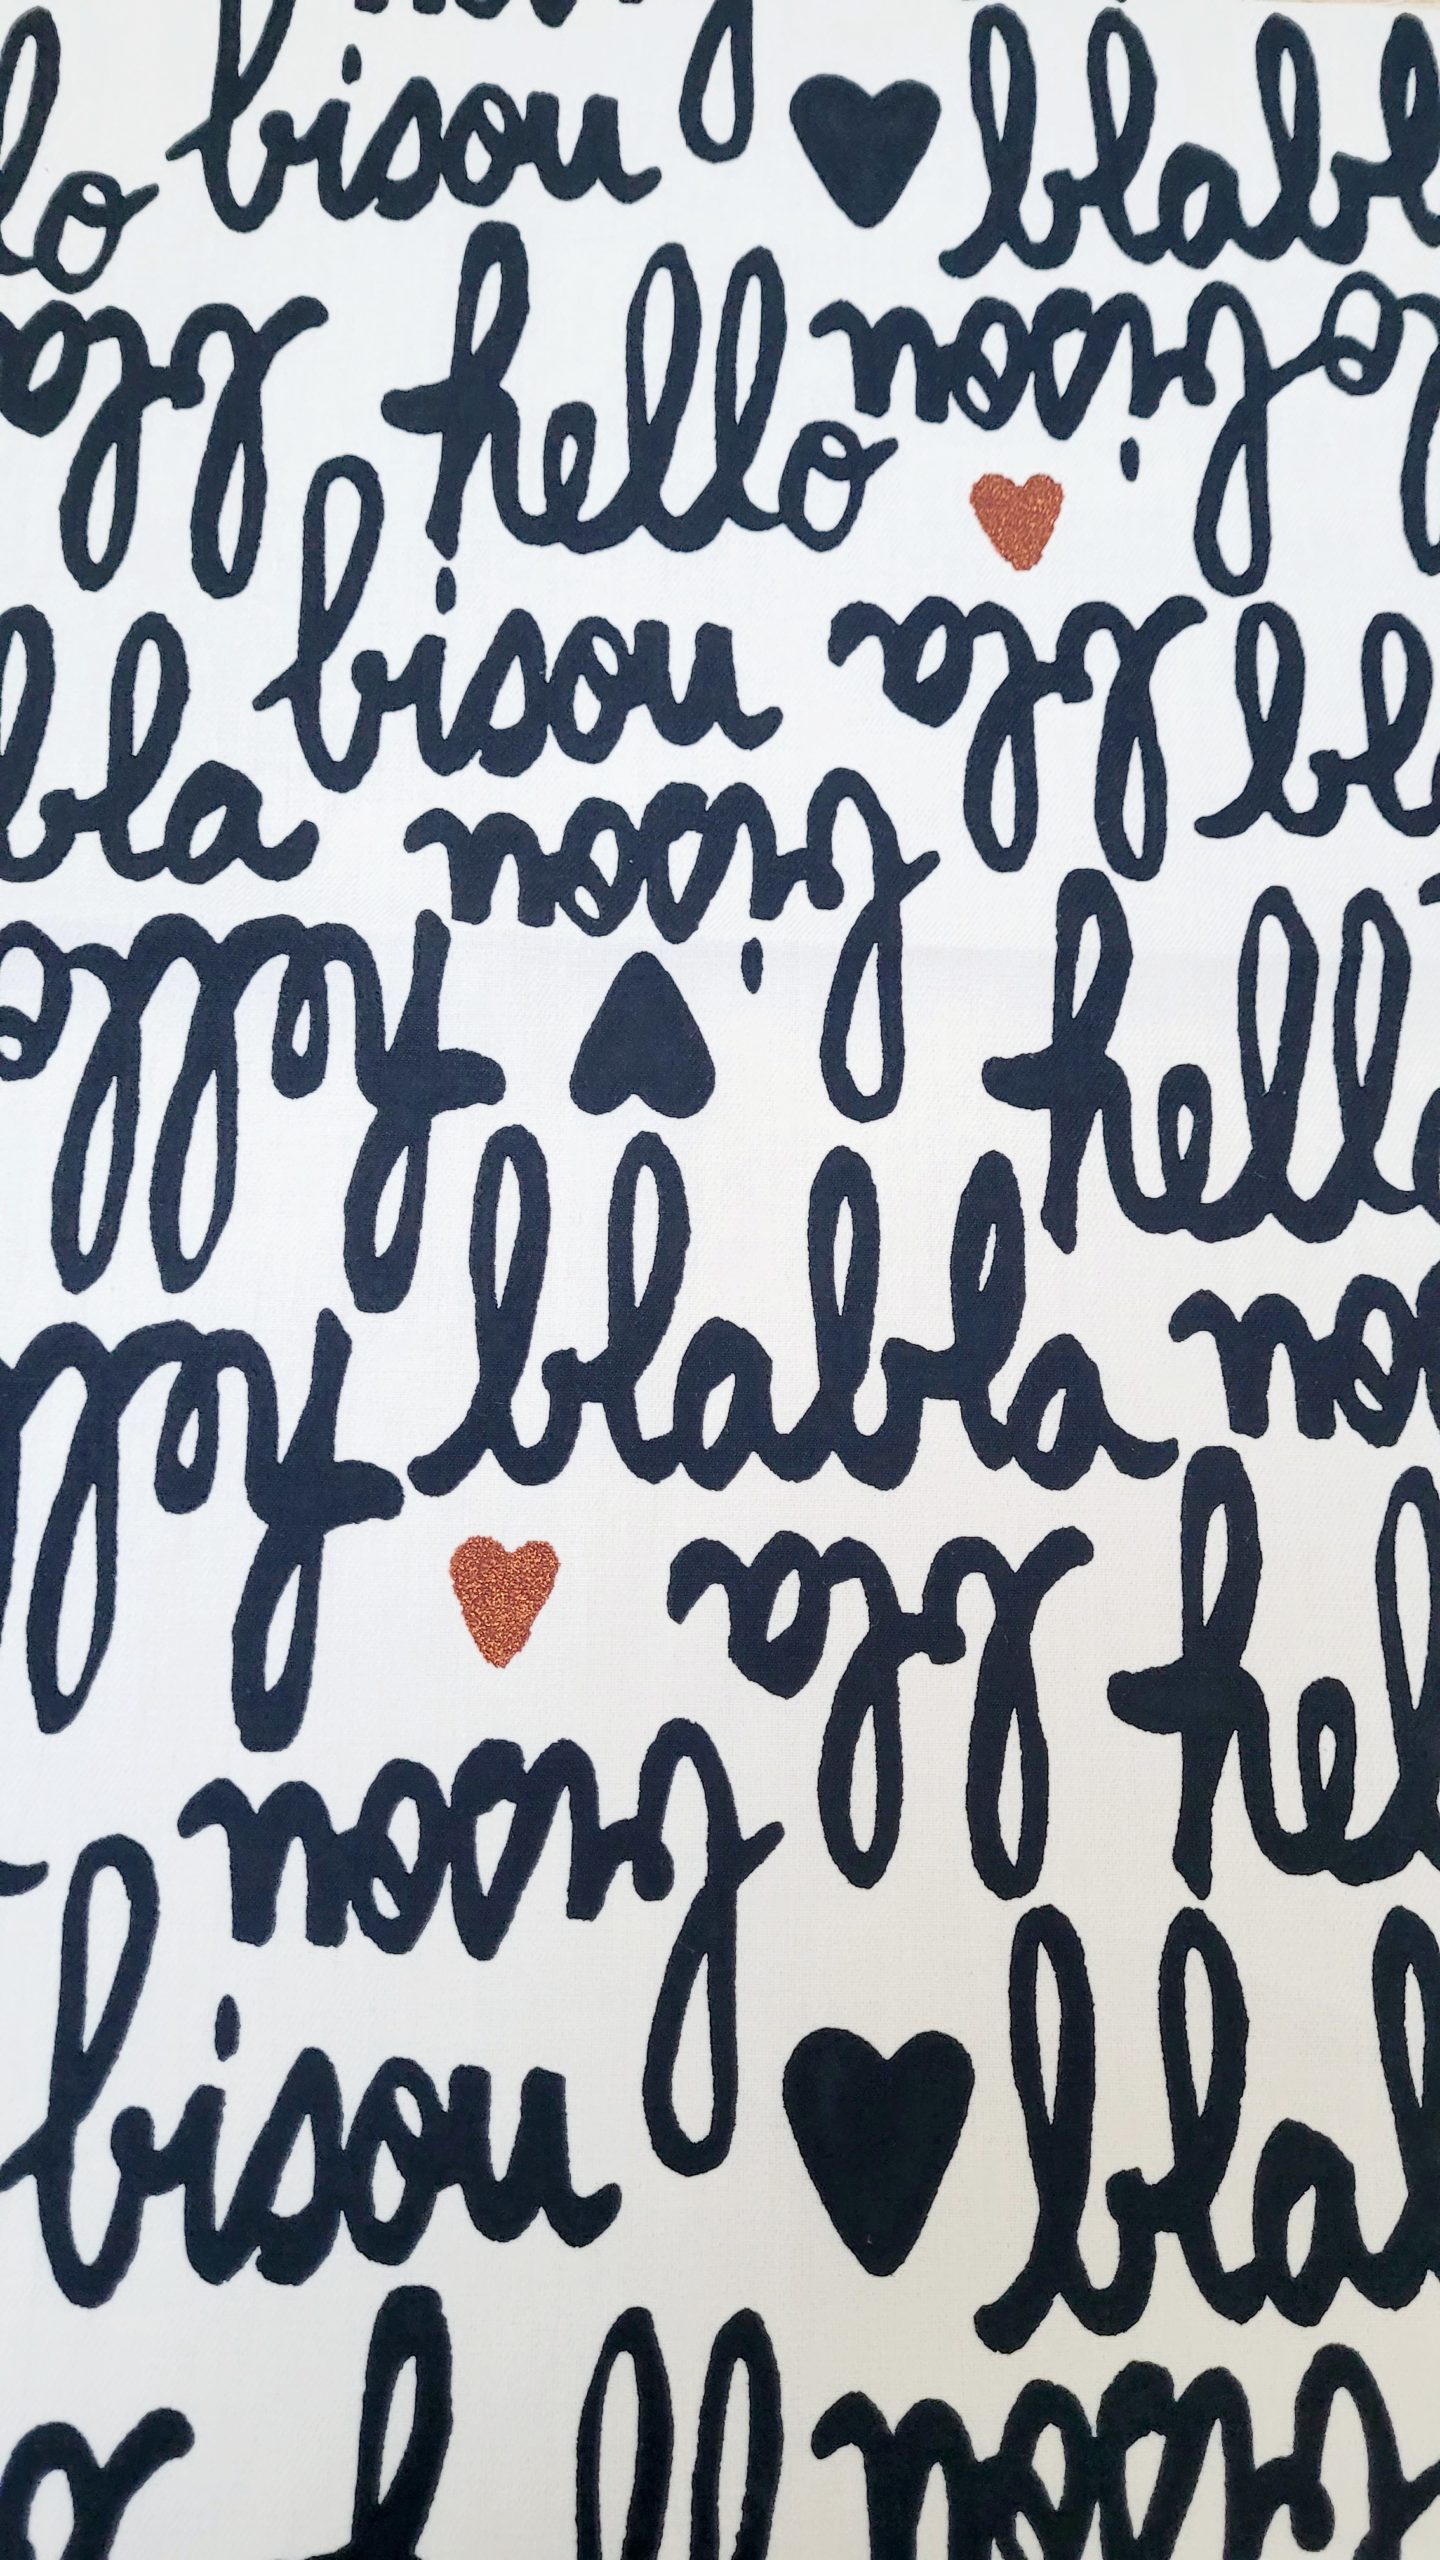 bisou
blabl
lo
hello
bisou
bisou
bla
bl
bla
bisou
hell
hello
blabla
bla
hel
bisou
bisou
blabl
bisou